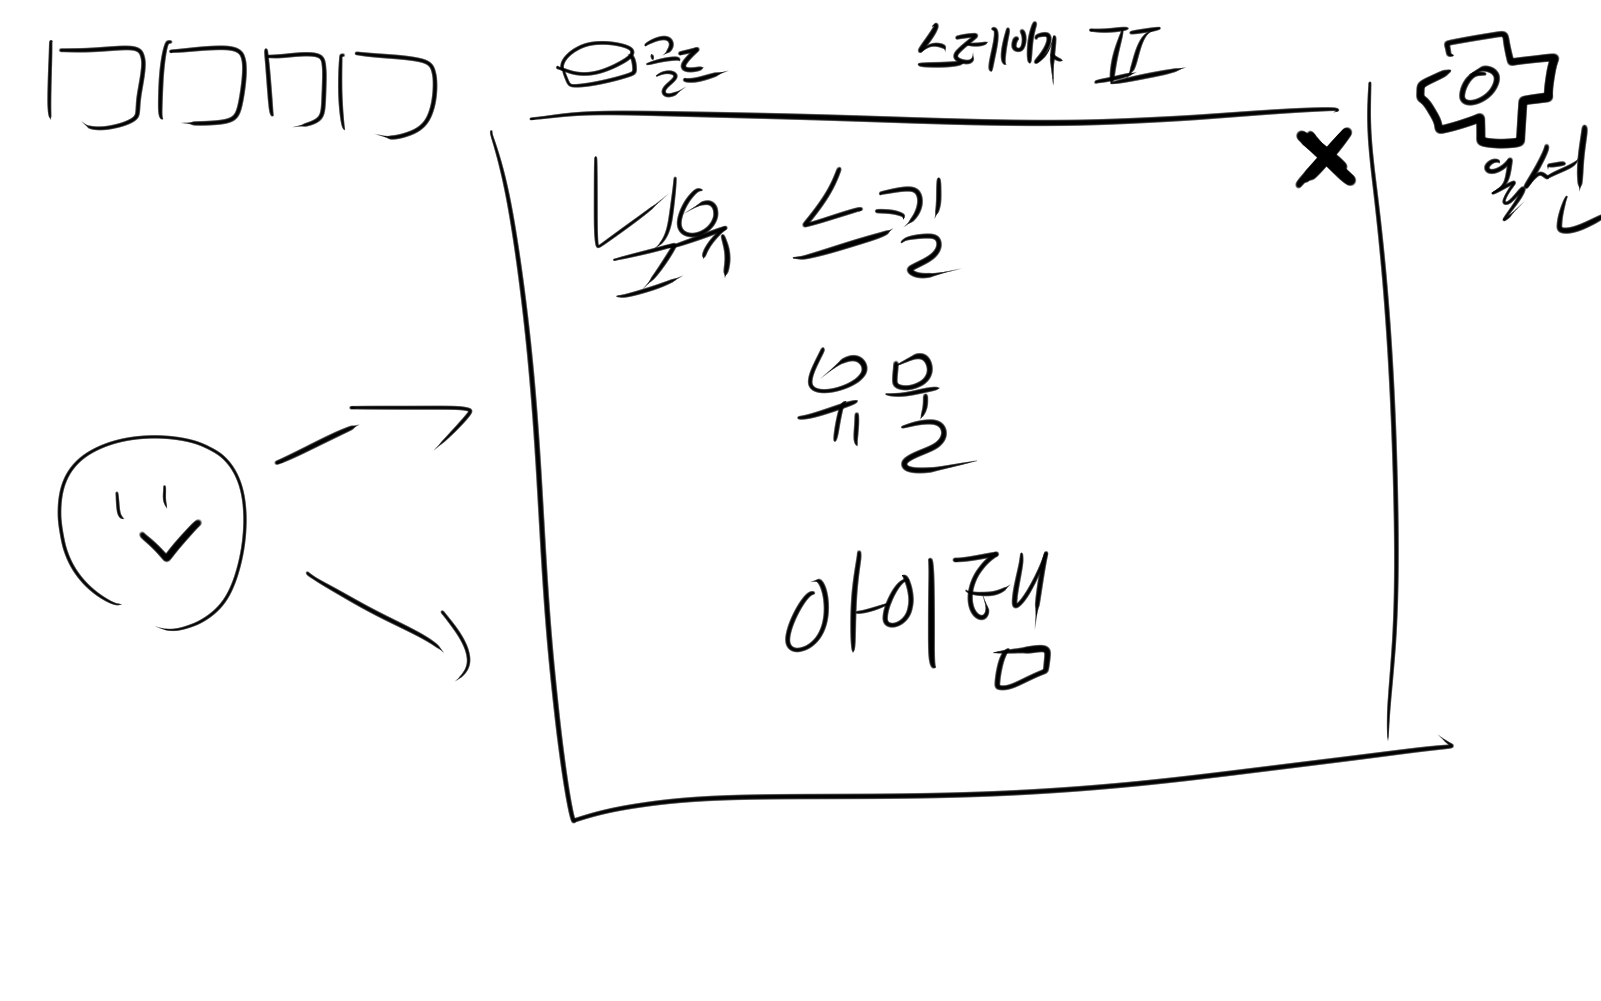 골드 스테이지 II
옵션
보유 스킬
유물
아이템